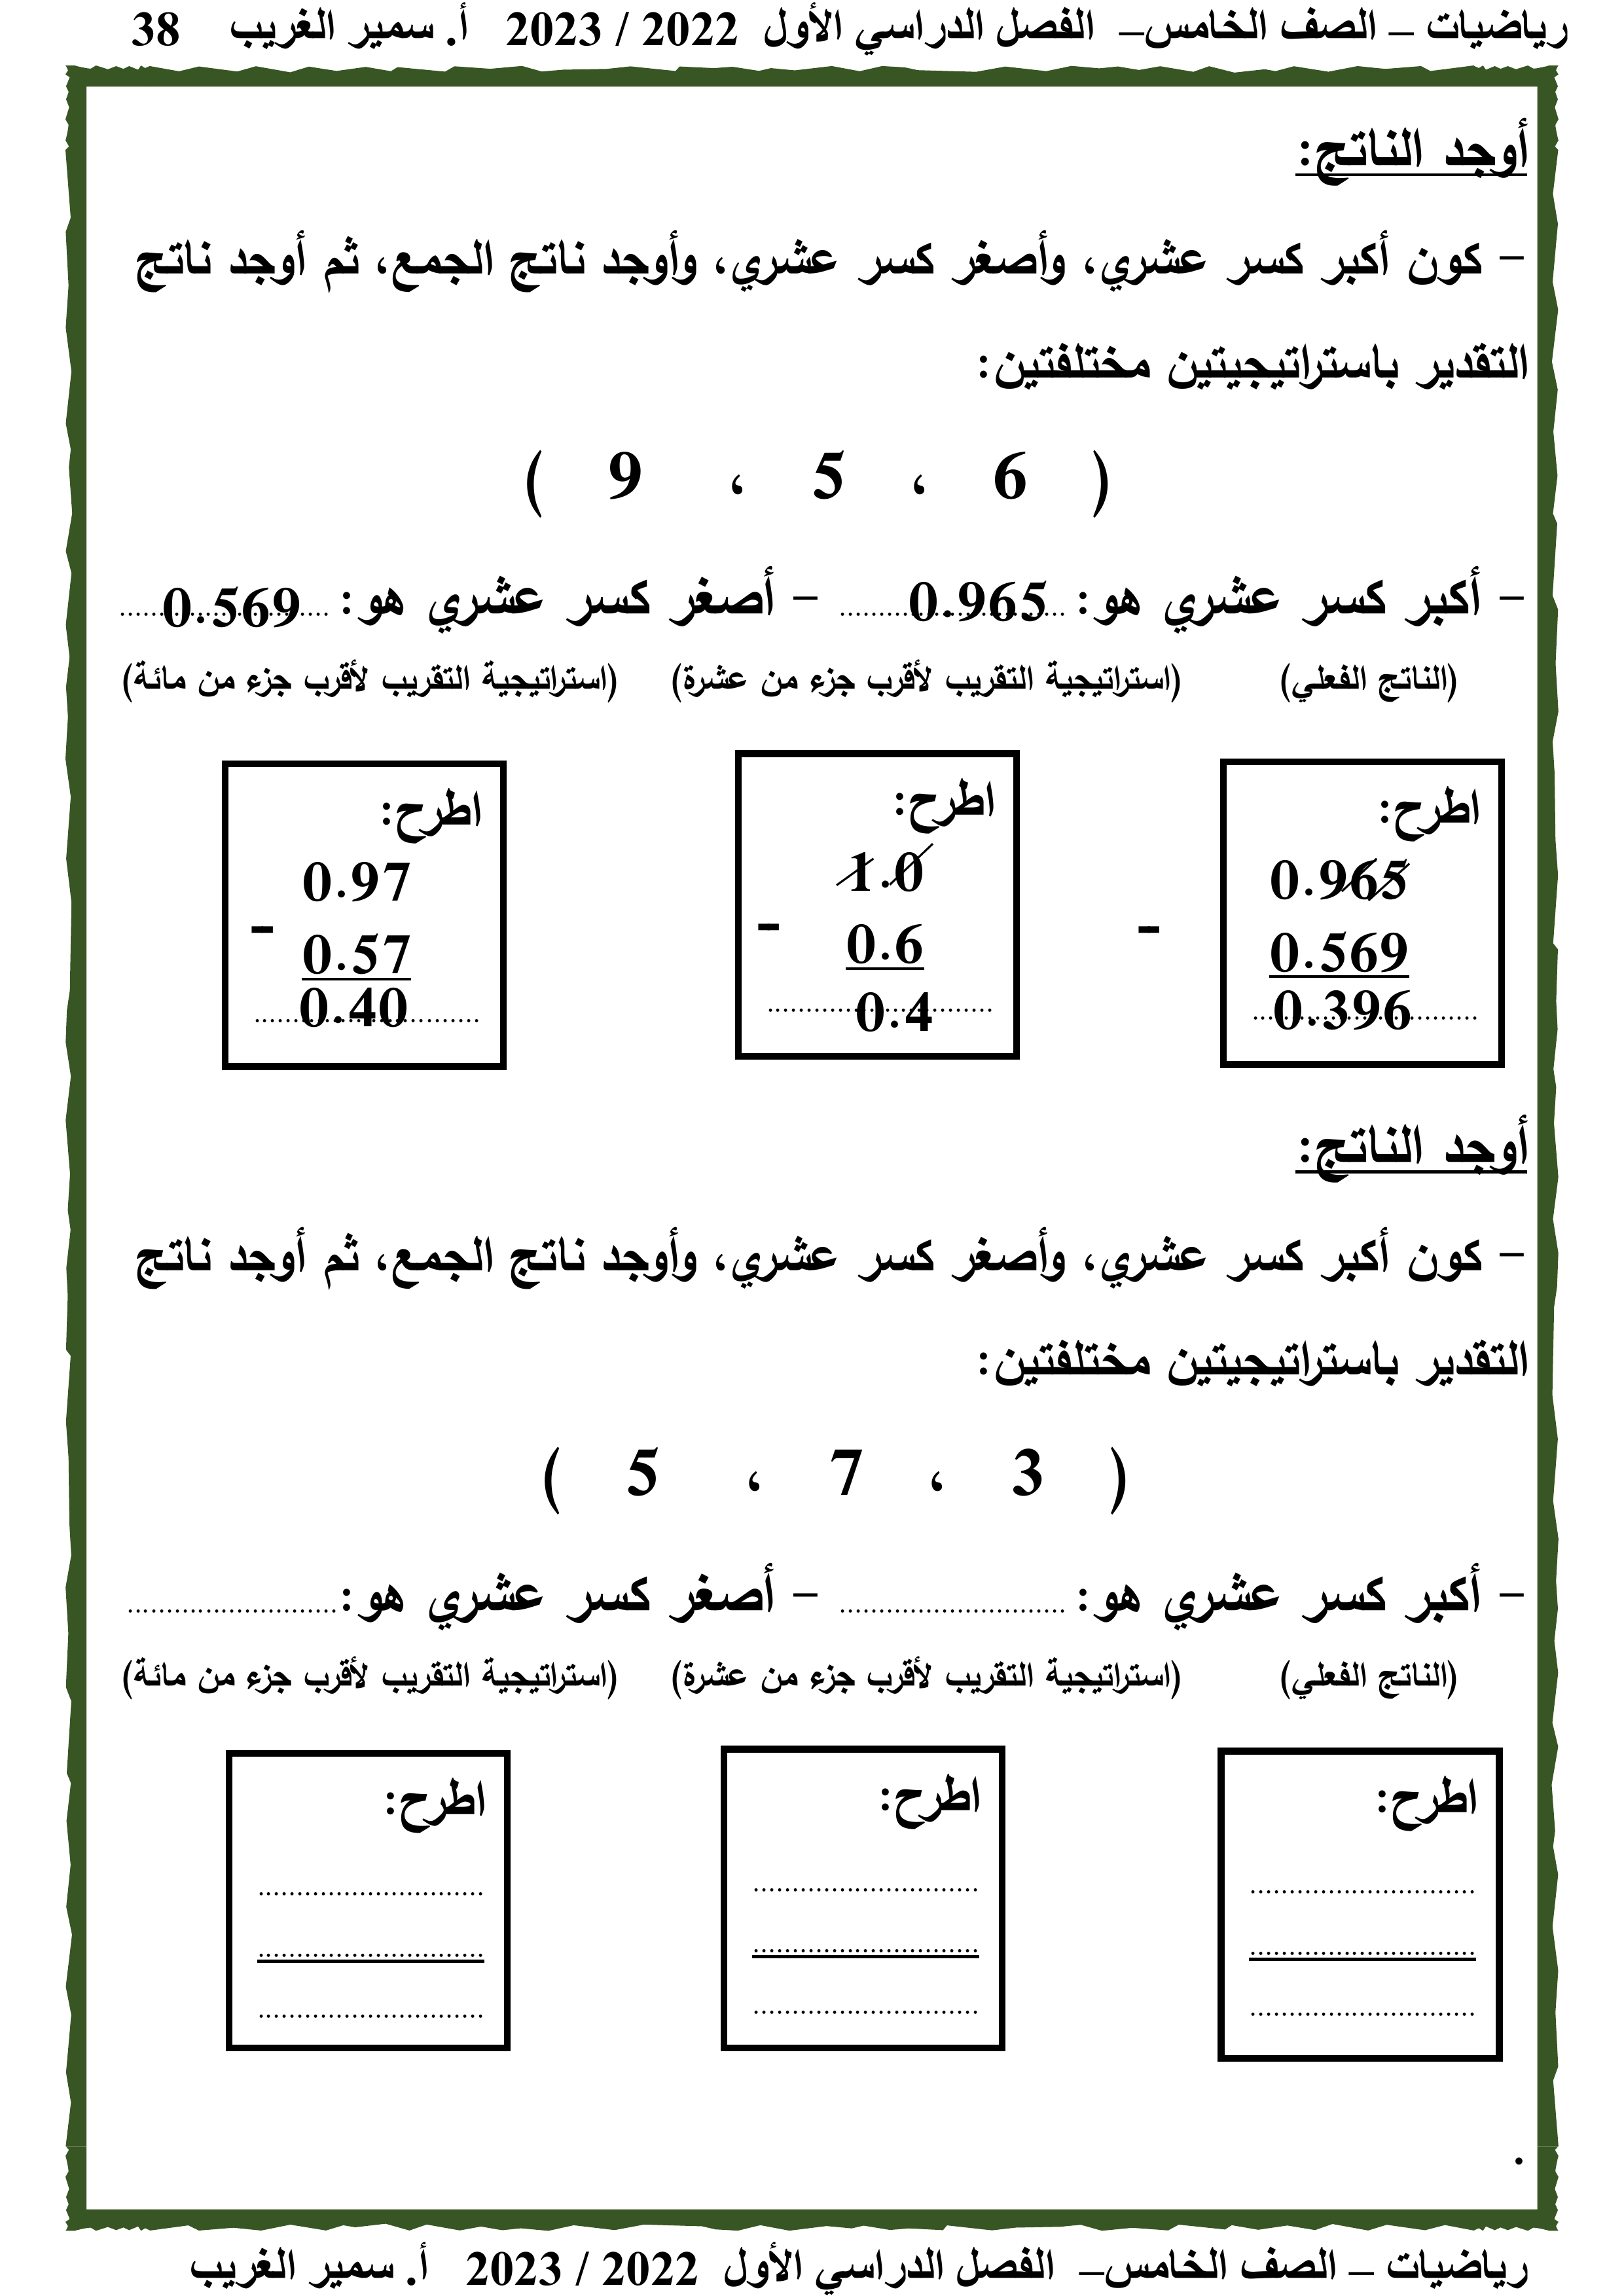 رياضيات – الصف الخامس– الفصل الدراسي الأول 2022 / 2023 أ. سمير الغريب 38
أوجد الناتج:
– كون أكبر كسر عشري، وأصغر كسر عشري، وأوجد ناتج الجمع، ثم أوجد ناتج
التقدير باستراتيجيتين مختلفتين:
( 6 ، 5 ، 9 )
– أكبر كسر عشري هو: 0.965 – أصغر كسر عشري هو: 0.569
(الناتج الفعلي) (استراتيجية التقريب لأقرب جزء من عشرة) (استراتيجية التقريب لأقرب جزء من مائة)
اطرح:
0.965
-
0.569
0.396
اطرح:
1.0
-
0.6
0.4
اطرح:
0.97
-
0.57
0.40
أوجد الناتج:
– كون أكبر كسر عشري، وأصغر كسر عشري، وأوجد ناتج الجمع، ثم أوجد ناتج
التقدير باستراتيجيتين مختلفتين:
( 3 ، 7 ، 5 )
– أكبر كسر عشري هو: ............................ – أصغر كسر عشري هو:..........................
(الناتج الفعلي) (استراتيجية التقريب لأقرب جزء من عشرة) (استراتيجية التقريب لأقرب جزء من مائة)
اطرح:
............................
............................
............................
اطرح:
............................
............................
............................
اطرح:
............................
............................
............................
.
رياضيات – الصف الخامس– الفصل الدراسي الأول 2022 / 2023 أ. سمير الغريب